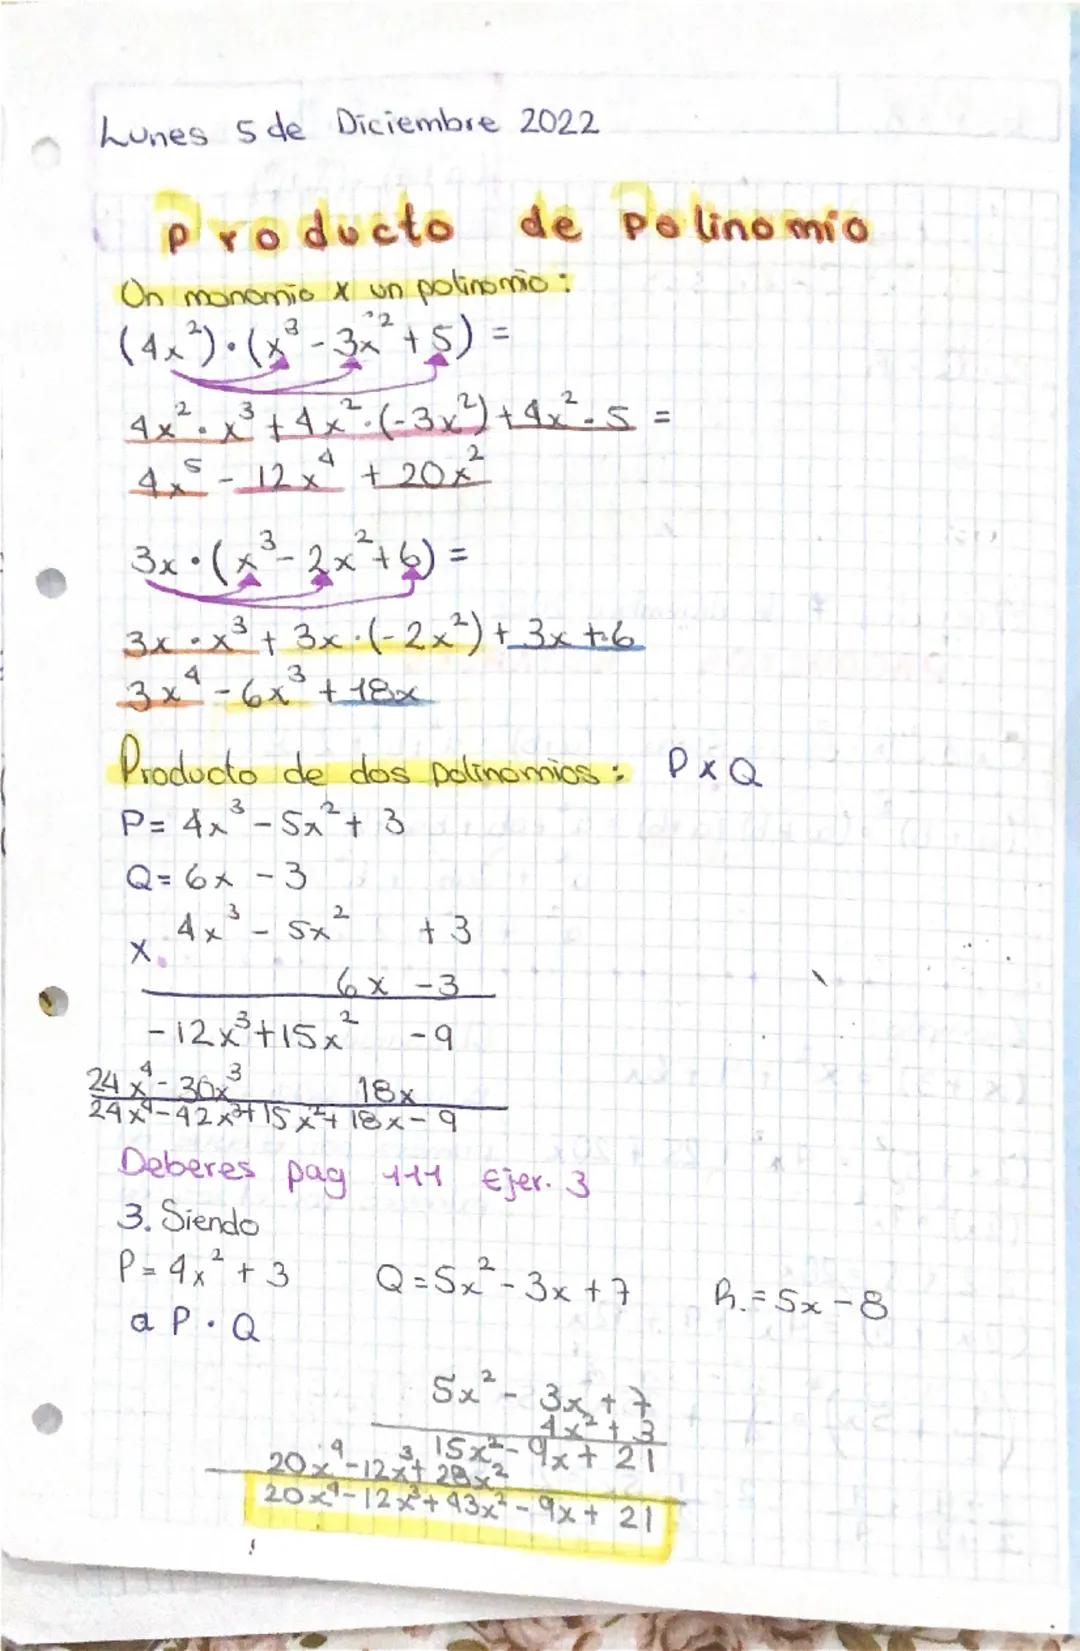 Lunes 5 de Diciembre 2022
Producto de Polinomio
Un monomio x un polinomio:
(4x²)·(x³ - 3x² + 5) =
4x² · x³ + 4x² · (-3x²) + 4x² · 5 =
4x⁵ - 12x⁴ + 20x²
3x · (x³ - 2x² + 6) =
3x · x³ + 3x · (-2x²) + 3x + 6
3x⁴ - 6x³ + 18x
Producto de dos polinomios: P x Q
P = 4x³ - 5x² + 3
Q = 6x - 3
4x³ - 5x² + 3
x
6x - 3
-12x³ + 15x² - 9
24x⁴ - 30x³ 18x
24x⁴ - 42x³ + 15x² + 18x - 9
Deberes pag 111 Ejer. 3
3. Siendo
P = 4x² + 3 Q = 5x² - 3x + 7 R. = 5x - 8
a P · Q
5x² - 3x + 7
4x² + 3
15x² - 9x + 21
20x⁴ - 12x³ + 28x²
20x⁴ - 12x³ + 43x² - 9x + 21